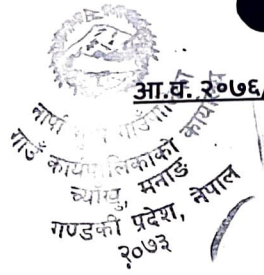 आ.व. २०७६/
नार्पा भूमि गाउँपा
गाउँ कार्यपालिकाको कार्यालय
च्याँखु, मनाङ
गण्डकी प्रदेश, नेपाल
२०७३